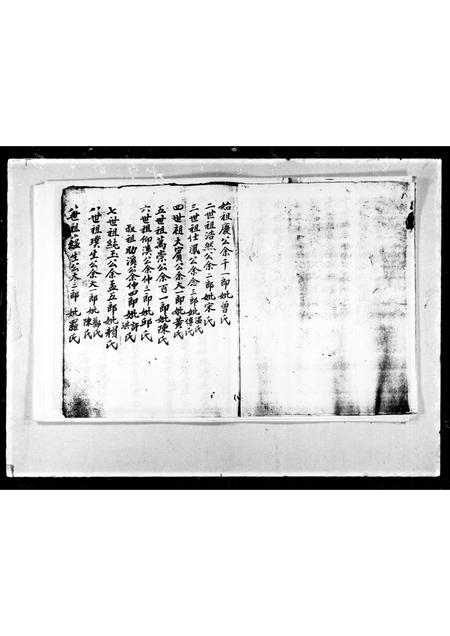 始祖慶公余千一郎妣曾氏
二世祖浩然公余二郎妣宋氏
三世祖仕鳳公余念三郎妣温氏傅氏
四世祖大賓公余大一郎妣黄氏
五世祖萬崇公余百一郎妣陳氏
六世祖仰溪公余仲三郎妣邱氏
叔祖助溪公余仲四郎妣許氏梁氏
七世祖純玉公余孟五郎妣賴氏
八世祖璞生公余大一郎妣鄭氏陳氏
世祖蘊生公大三郎妣羅氏